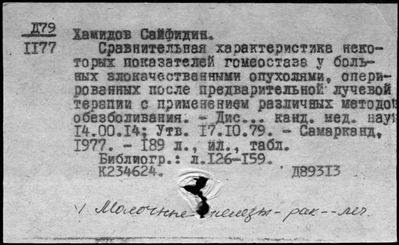 Д79
1177
Хамидов Сайфидин.
Сравнительная характеристика неко-
торых показателей гомеостаза у боль-
ных злокачественными опухолями, опери-
рованных после предварительной лучевой
терапии с применением различных методов
обезболивания. - Дис... канд. мед. наук
14.00.14; Утв. 17.10.79. - Самарканд,
1977. - 189 л., ил., табл.
Библиогр.: л.126-159.
К234624. Д89313
Молочные железы - рак -- леч.